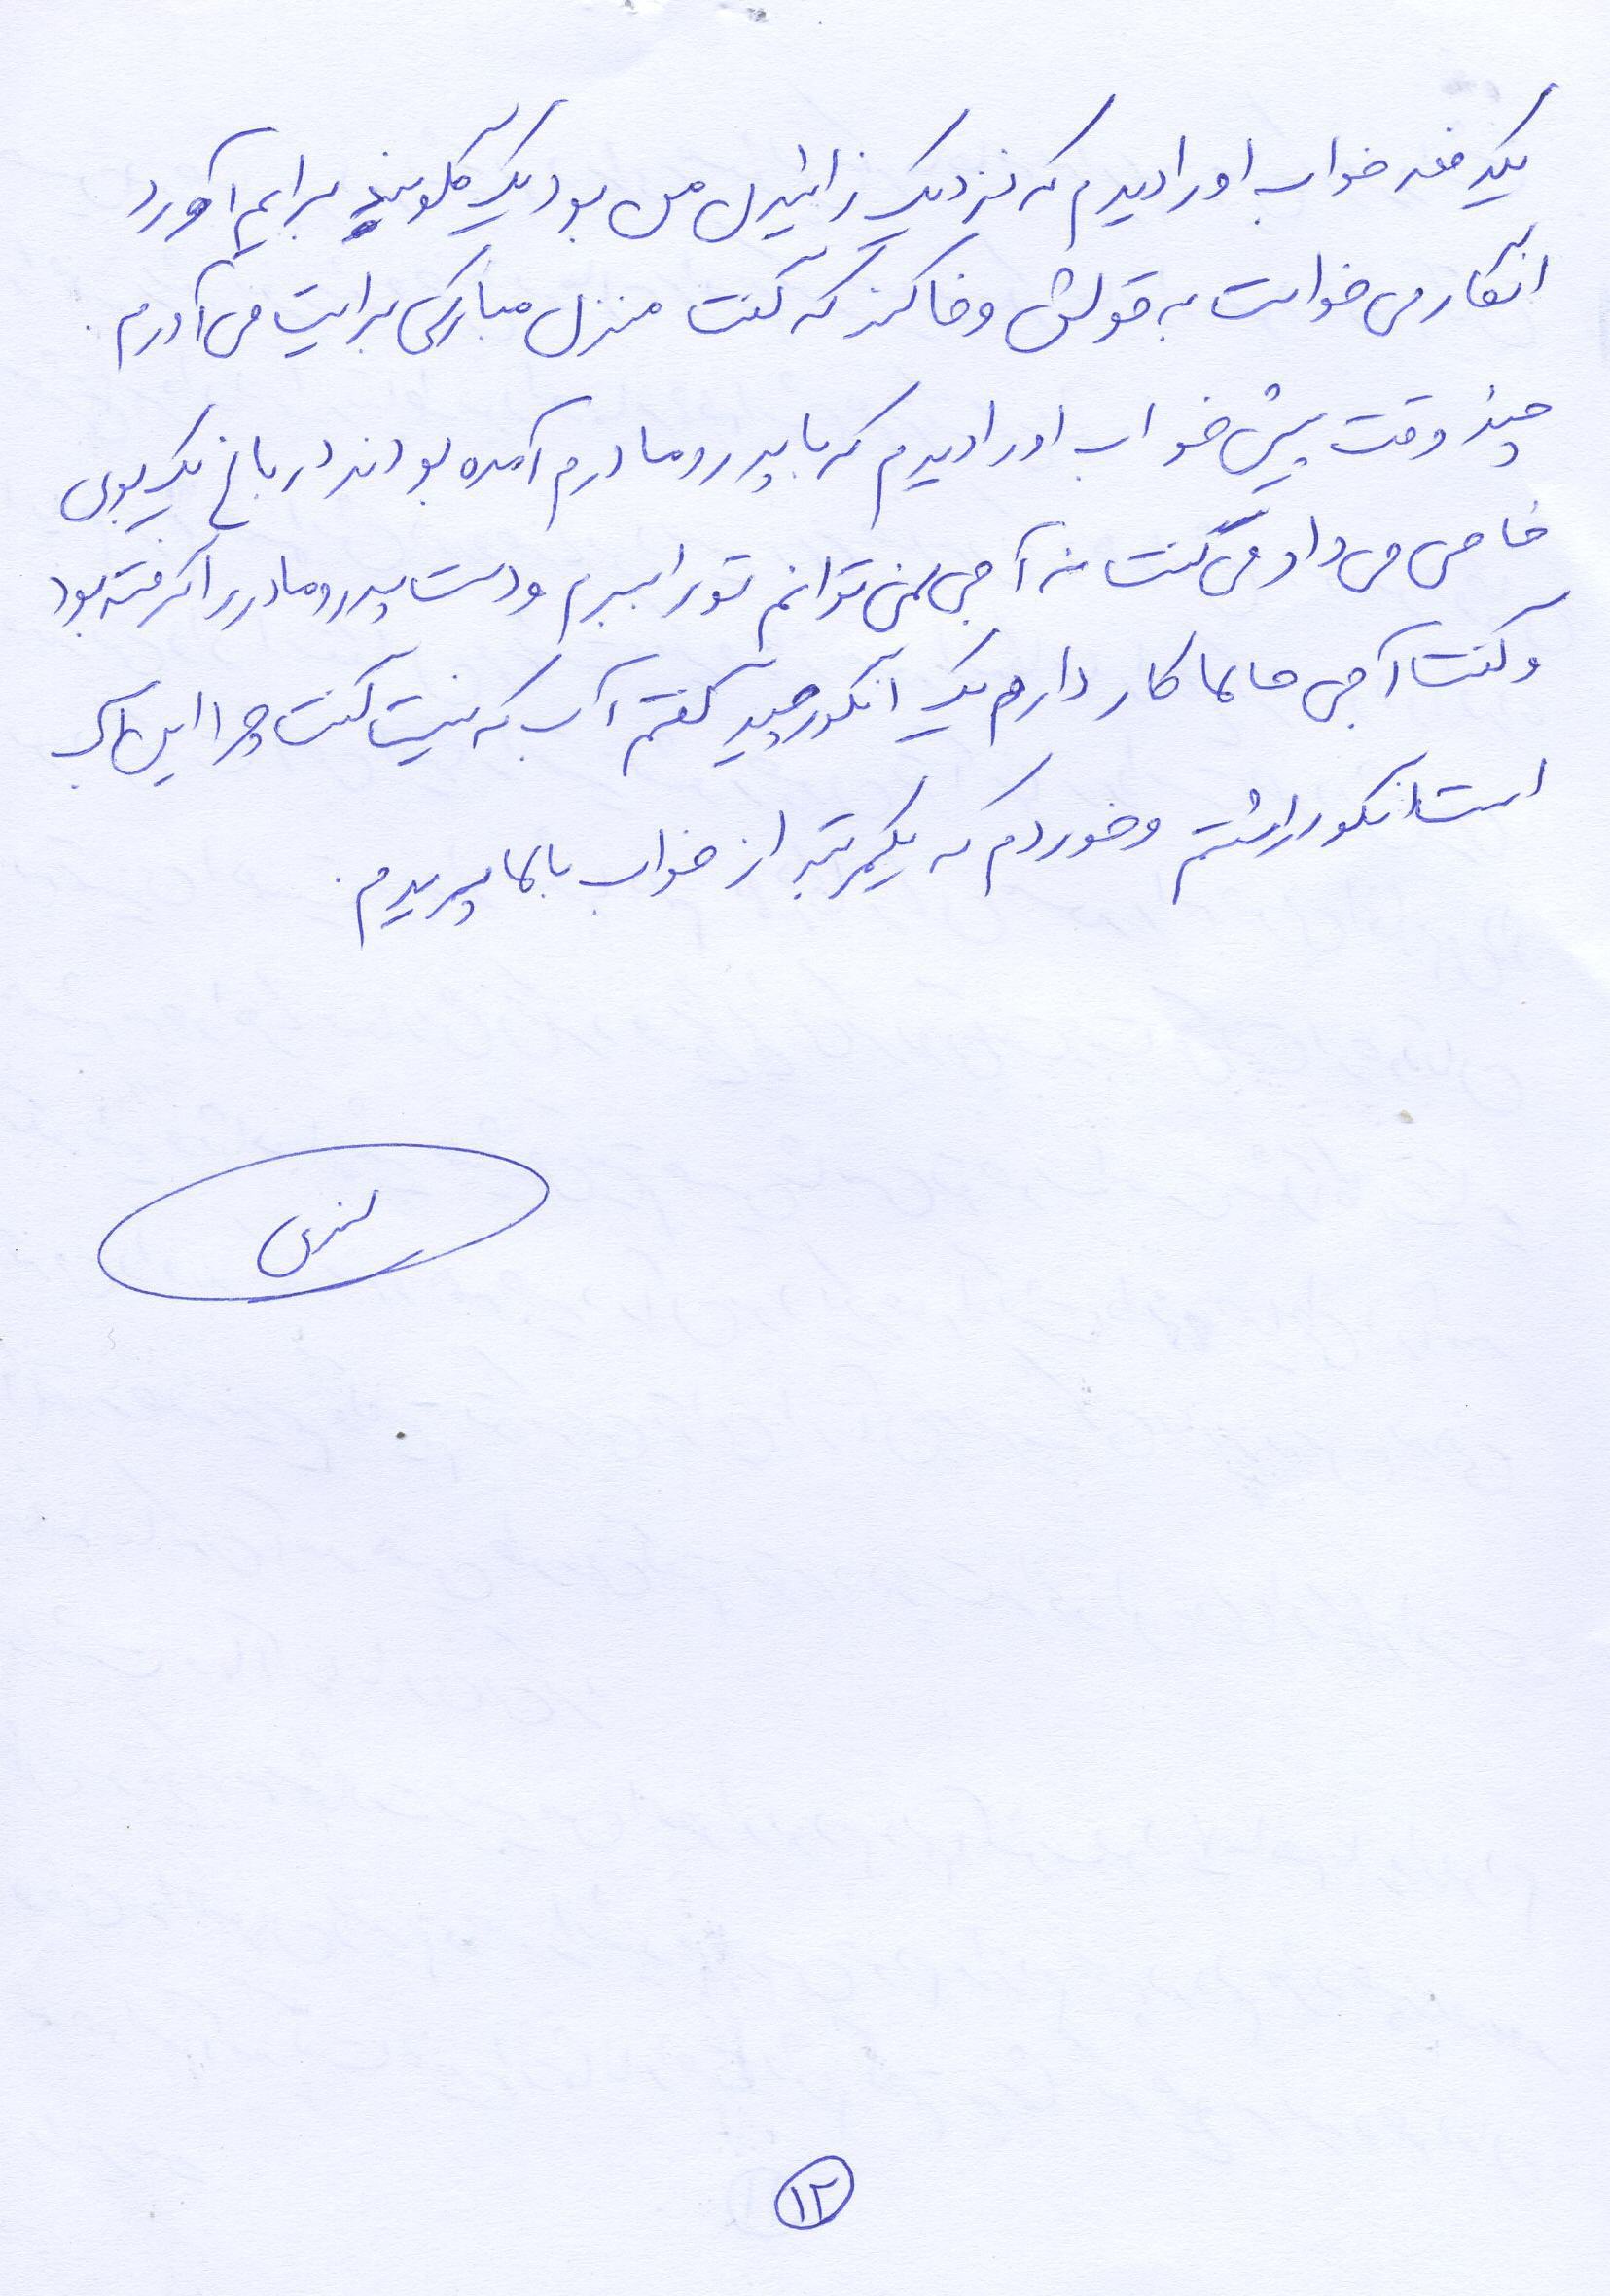 یکدفعه خواب او را دیدم که نزدیک زانیدل من بود یک گلوبند برایم آورد
انگار می خواست به قولش وفا کند که گفت منزل مبارکی برایت می آورم.
چند وقت پیش خواب او را دیدم که با پدر و مادرم آمده بودند در باغ یک بوی
خاصی می داد می گفت نه آجی نمی توانم تو را ببرم و دست پدر و مادر را گرفته بود
و گفت آجی حالا کار دارم یک انگور چید گفتم آب که نیست گفت چرا این آب
است انگور را شستم و خوردم که یکمرتبه از خواب بالا پریدم.
۱۲